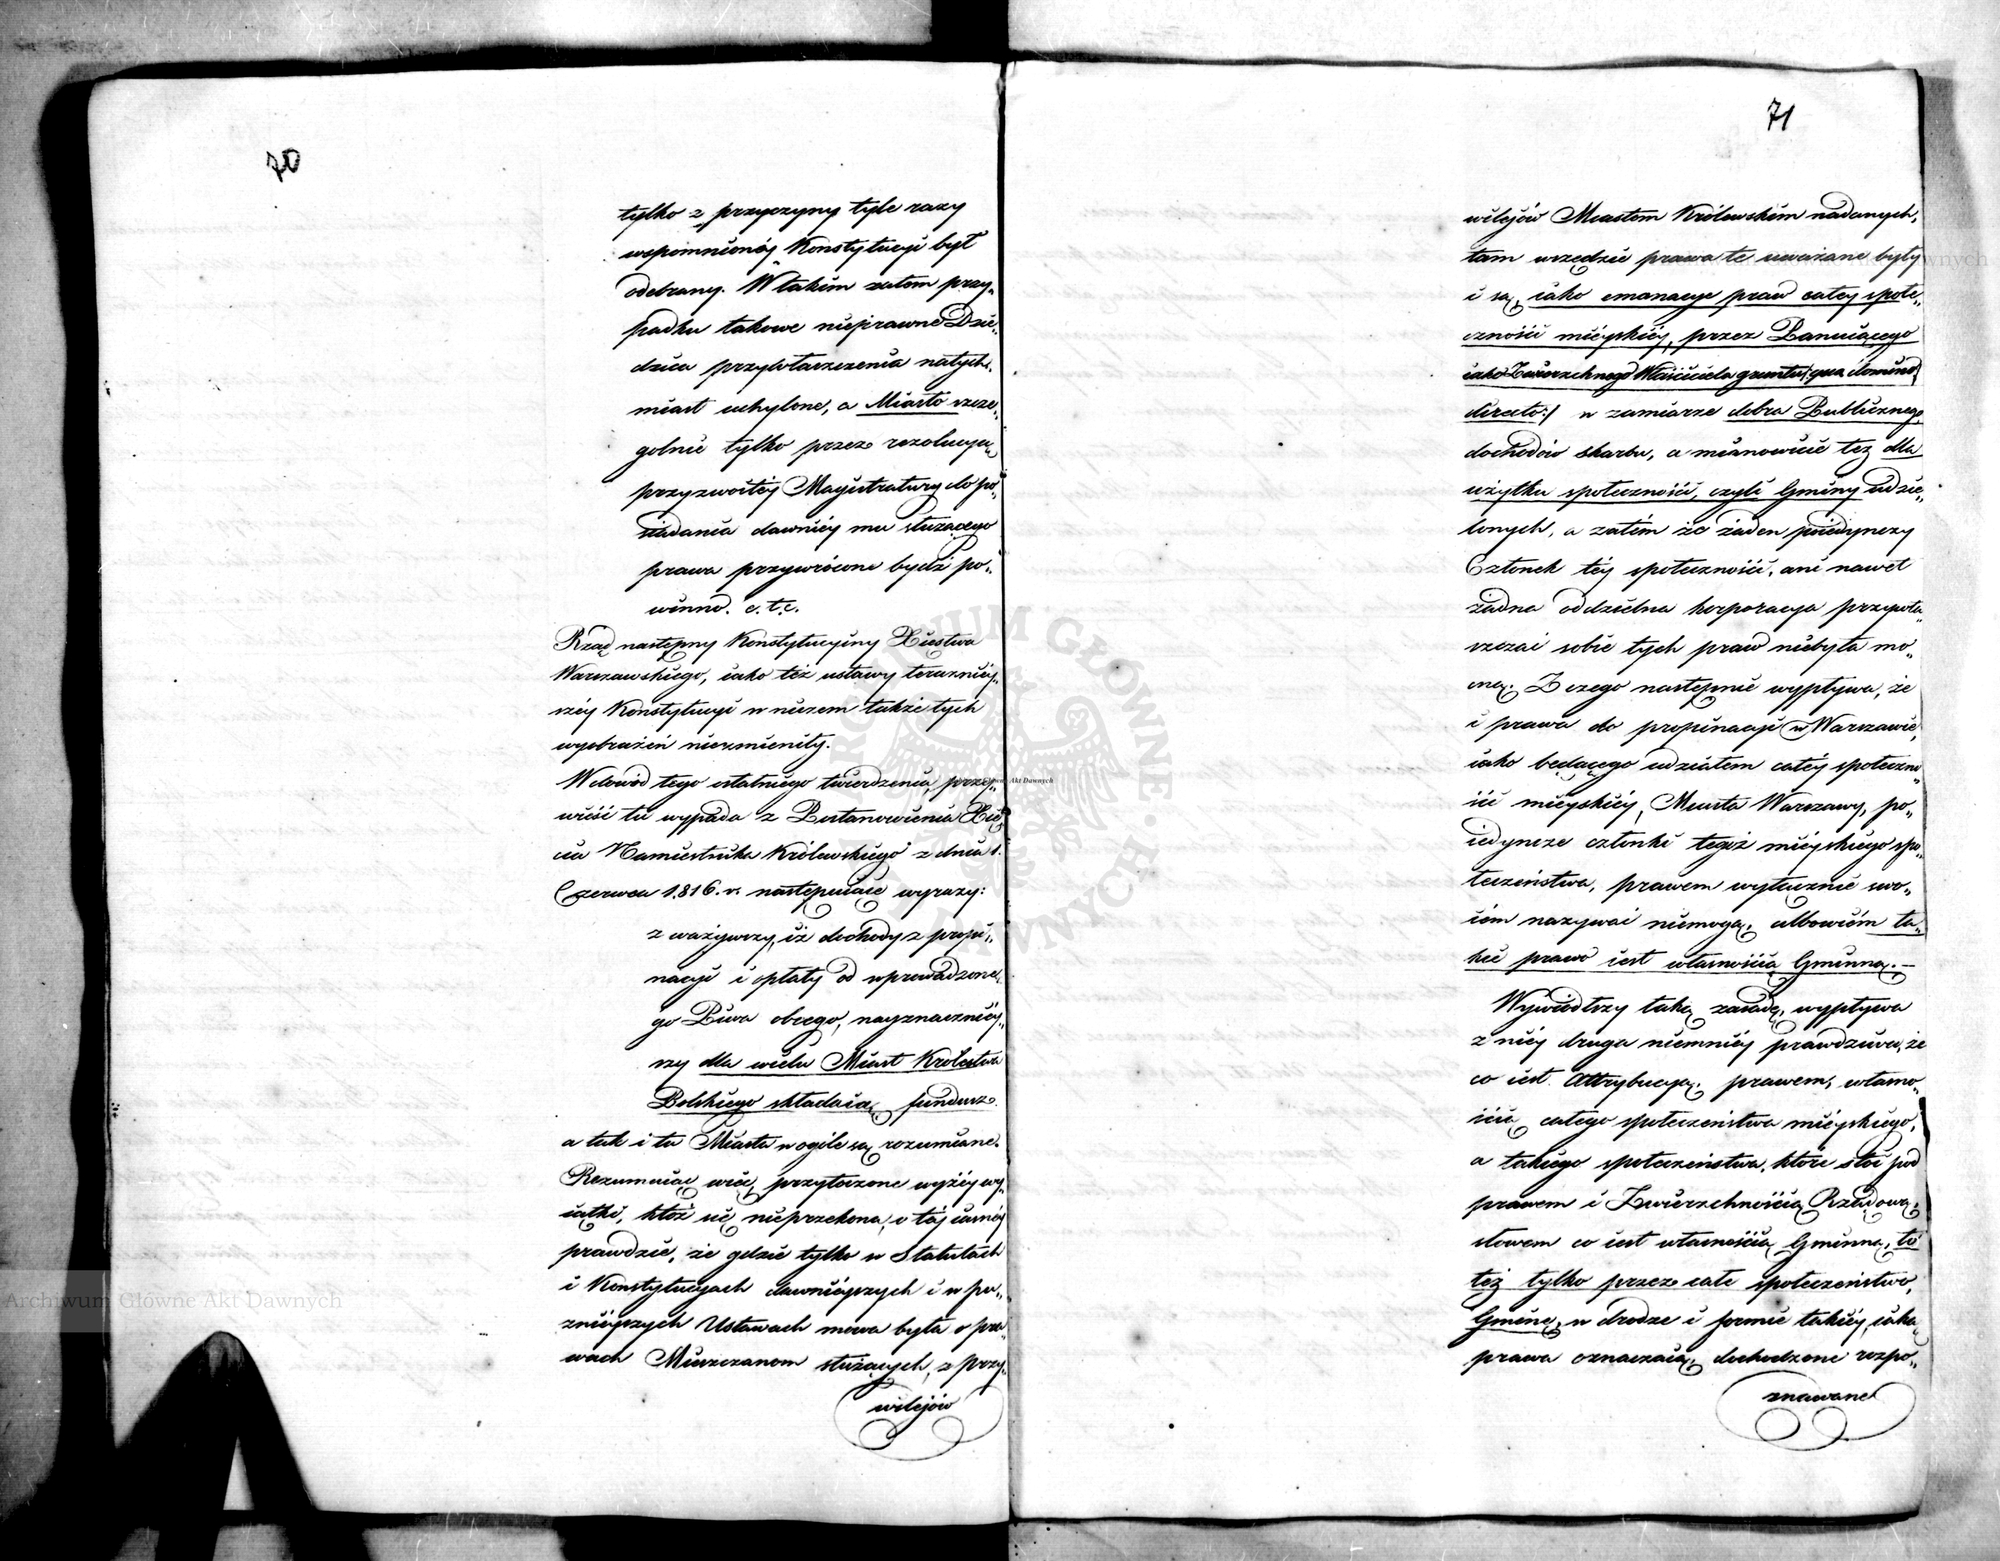 70
tylko z przyczyny tyle razy
wspomnionéj Konstytucyi był
odebrany. W takim zatem przy„
padku takowe nieprawne Dzie„
dzica przywłaszczenia natych„
miast uchylone, a Miasto szcze„
golnie tylko przez rezolucyą
przyzwoitéj Magistratury do po„
siadania dawniéj mu służącego
prawa przywrócone bydź po„
winno. e.t.c.
Rząd następny Konstytucyiny Xięstwa
Warszawskiego, iako też ustawy teraźniéy„
széy Konstytucyi w niczem także tych
wyobrażeń niezmieniły.
W dowód tego ostatniego twierdzenia, przy„
wieść tu wypada z Postanowienia Xię„
cia Namiestnika Królewskiego z dnia 1.
Czerwca 1816. r. następuiące wyrazy:
zważywszy, iż dochody z propi„
nacyi i opłaty od wprowadzone„
go Piwa obcego, nayznacznié„
szy dla wielu Miast Królestwa
Polskiego składaią fundusz.
a tak i tu Miasta w ogóle są rozumiane.
Rezumuiąc więc, przytoczone wyżéj wy„
iątki, któż się nieprzekona, o téj iasnéj
prawdzie, że gdzie tylko w Statutach
i Konstytucyach dawniéyszych i w po„
źniéyszych Ustawach mowa była o pra„
wach Mieszczanom służących, z przy„
wilejów
71
wilejów Miastom Królewskim nadanych,
tam wszędzie prawa te uważane były
i są, iako emanacye praw całey społe„
czności miéyskiéy, przez Panuiącego
iako Zwierzchnego Właściciela gruntu /:qua domino
directo:/ w zamiarze dobra Publicznego,
dochodów skarbu, a mianowicie też dla
użytku społeczności, czyli Gminy udzie„
lonych, a zatém że żaden poiedynczy
Członek téy społeczności, ani nawet
żadna oddzielna korporacya przywła
szczać sobie tych praw niebyła mo„
cną. Z czego następnie wypływa, że
i prawa do propinacyi w Warszawie,
iako będącego udziałem całéy społeczno„
ści miéyskiéy, Miasta Warszawy, po„
iedyncze członki tegoż miéyskiego spo„
łeczeństwa, prawem wyłącznie swo„
iém nazywać niemogą, albowiém ta„
kie prawo iest własnością Gminną. —
Wywiódłszy taką zasadę, wypływa
z niéy druga niemniéy prawdziwa, że
co iest Attrybucyą, prawem, własno„
ścią całego społeczeństwa miéyskiego,
a takiego społeczeństwa, które stoi pod
prawem i Zwierzchnością Rządową,
słowem co iest własnością Gminną, to
też tylko przez całe społeczeństwo,
Gminę, w drodze i formie takiéy, iaką
prawa oznaczaią, dochodzone rozpo„
znawane
Archiwum Główne Akt Dawnych